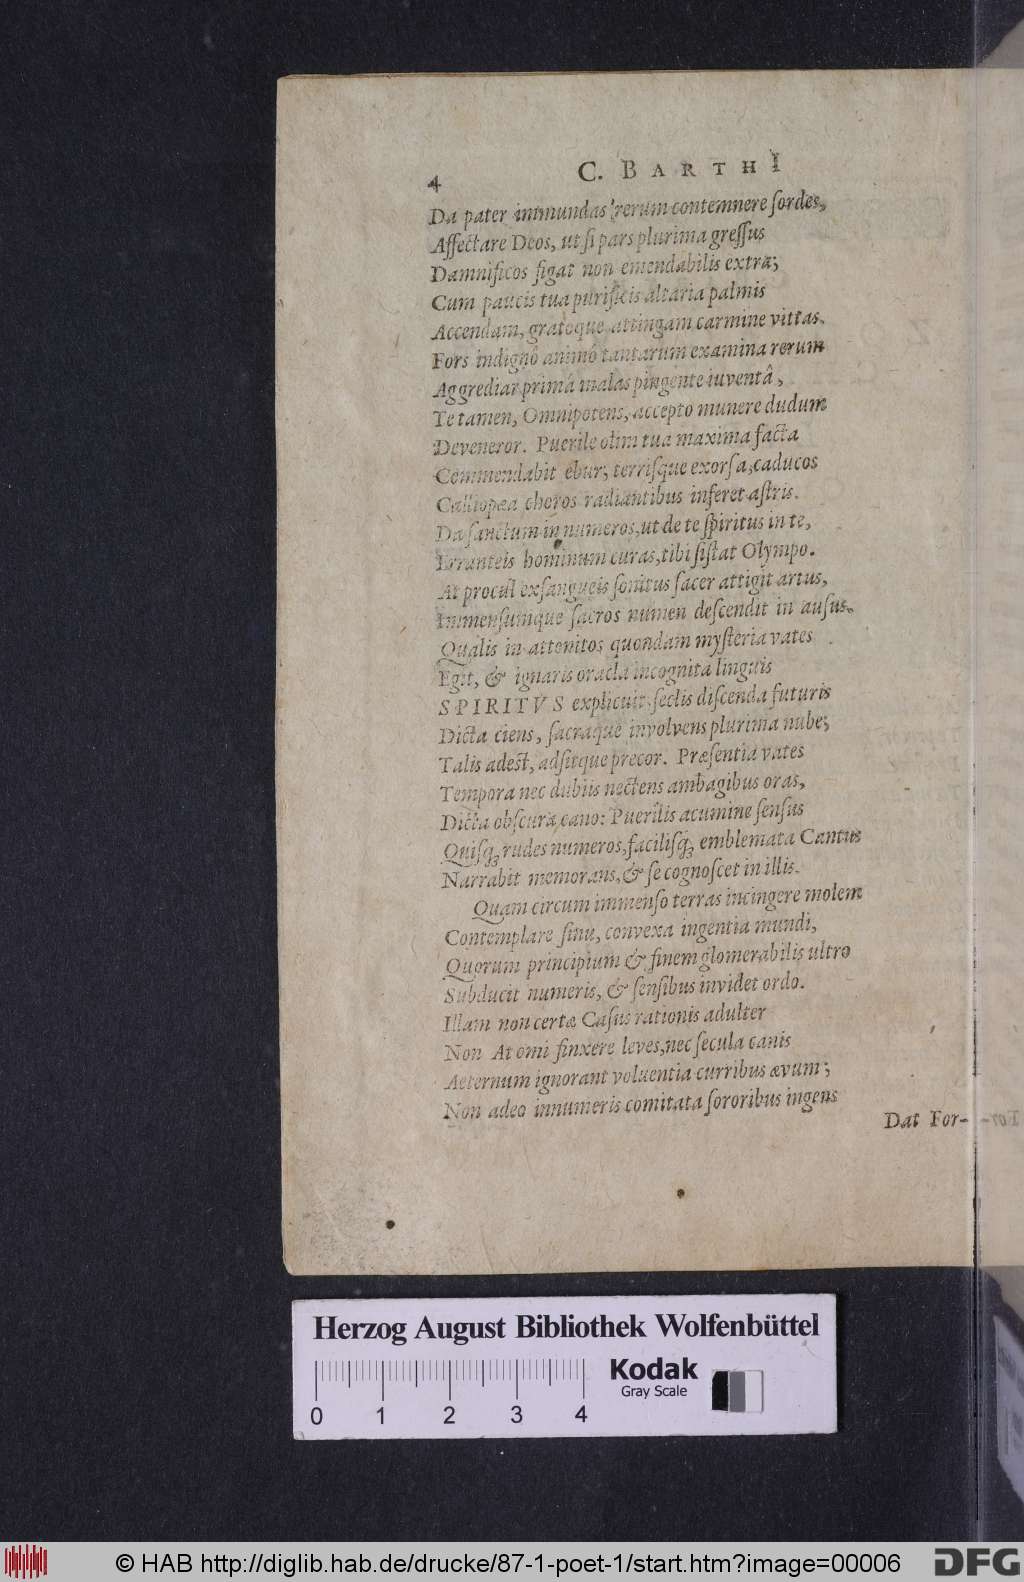 4
C. BARTHI
Da pater immundas rerum contemnere ſordes,
Affectare Deos, ut ſi pars plurima greſſus
Damnificos figat non emendabilis extra;
Cum paucis tua purificis altaria palmis
Accendam, gratoque attingam carmine vittas.
Fors indignô animô tantarum examina rerum
Aggrediar primâ malas pingente iuventâ,
Te tamen, Omnipotens, accepto munere dudum
Deveneror. Puerile olim tua maxima facta
Commendabit ebur, terriſque exorſa, caducos
Calliopæa choros radiantibus inferet aſtris.
Da ſanctum in numeros, ut de te ſpiritus in te,
Erranteis hominum curas, tibi ſiſtat Olympo.
At procul exſangueis ſonitus ſacer attigit artus,
Immenſumque ſacros numen deſcendit in auſus.
Qualis in attonitos quondam myſteria vates
Egit, & ignaris oracla incognita linguis
SPIRITVS explicuit ſeclis diſcenda futuris
Dicta ciens, ſacraque involvens plurima nube;
Talis adeſt, adſitque precor. Præſentia vates
Tempora nec dubiis nectens ambagibus oras,
Dicta obſcura cano: Puerilis acumine ſenſus
Quiſq; rudes numeros, faciliſq; emblemata Cantus
Narrabit memorans, & ſe cognoſcet in illis.
Quam circum immenſo terras incingere molem
Contemplare ſinu, convexa ingentia mundi,
Quorum principium & finem glomerabilis ultro
Subducit numeris, & ſenſibus invidet ordo.
Illam non certæ Caſus rationis adulter
Non Atomi finxere leves, nec ſecula canis
Aeternum ignorant voluentia curribus ævum;
Non adeo innumeris comitata ſororibus ingens
Dat For-
Herzog August Bibliothek Wolfenbüttel
Kodak
Gray Scale
0 1 2 3 4
© HAB http://diglib.hab.de/drucke/87-1-poet-1/start.htm?image=00006
DFG